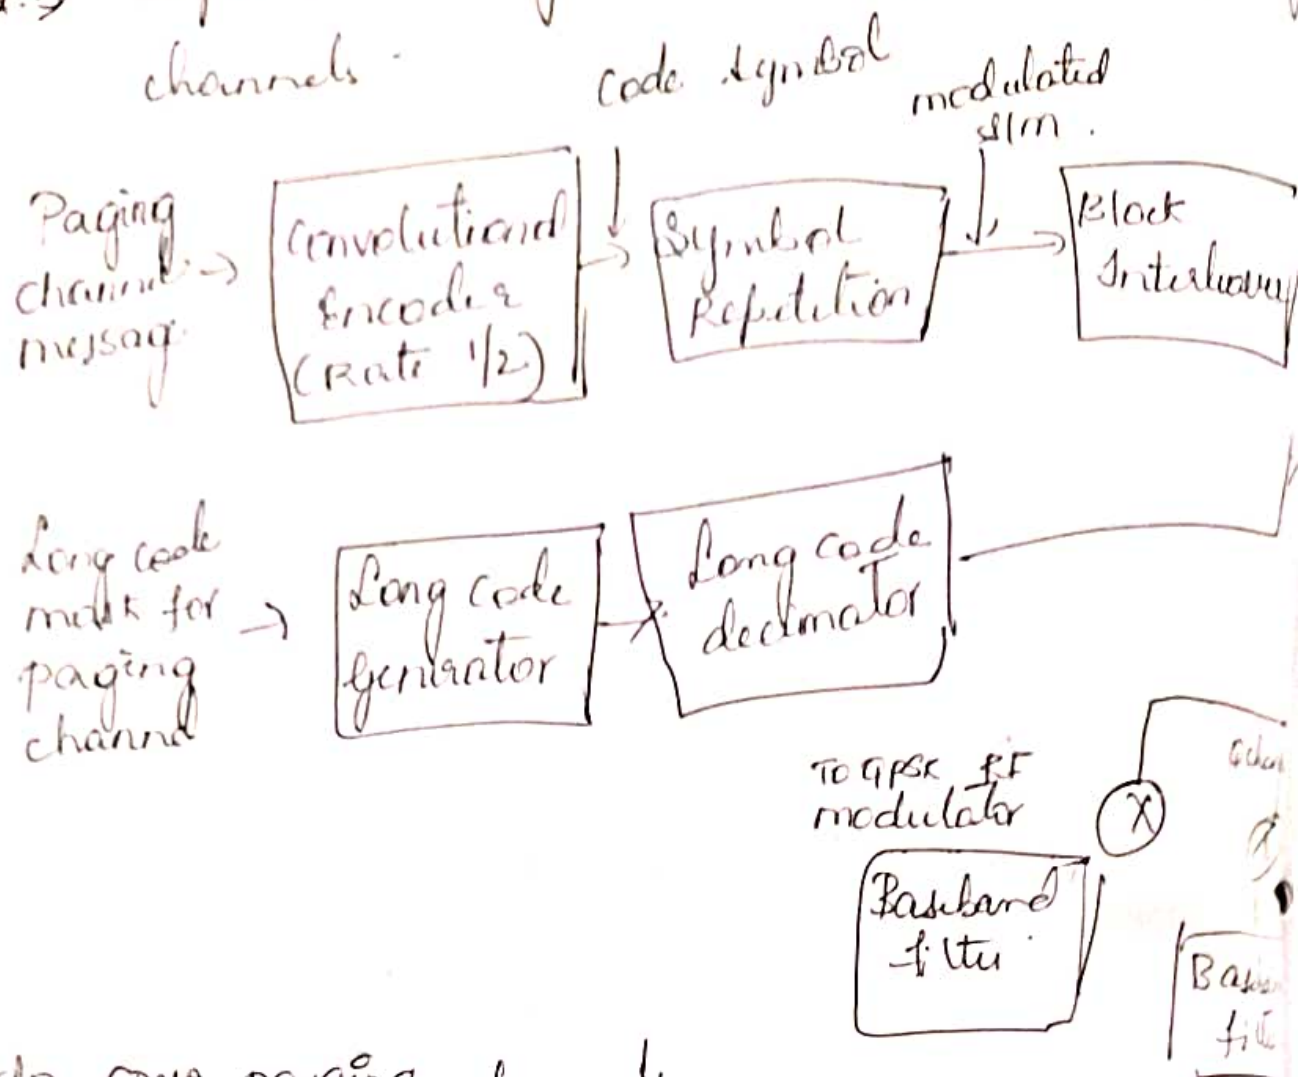 channels.
code symbol
modulated
s/m.
Paging
channel
messag.
Convolutional
Encoder
(Rate 1/2)
Symbol
Repetition
Block
Long code
mask for
paging
channel
Long code
generator
Long code
decimator
TO QPSK RF
modulator
X
Baseband
filter
paging